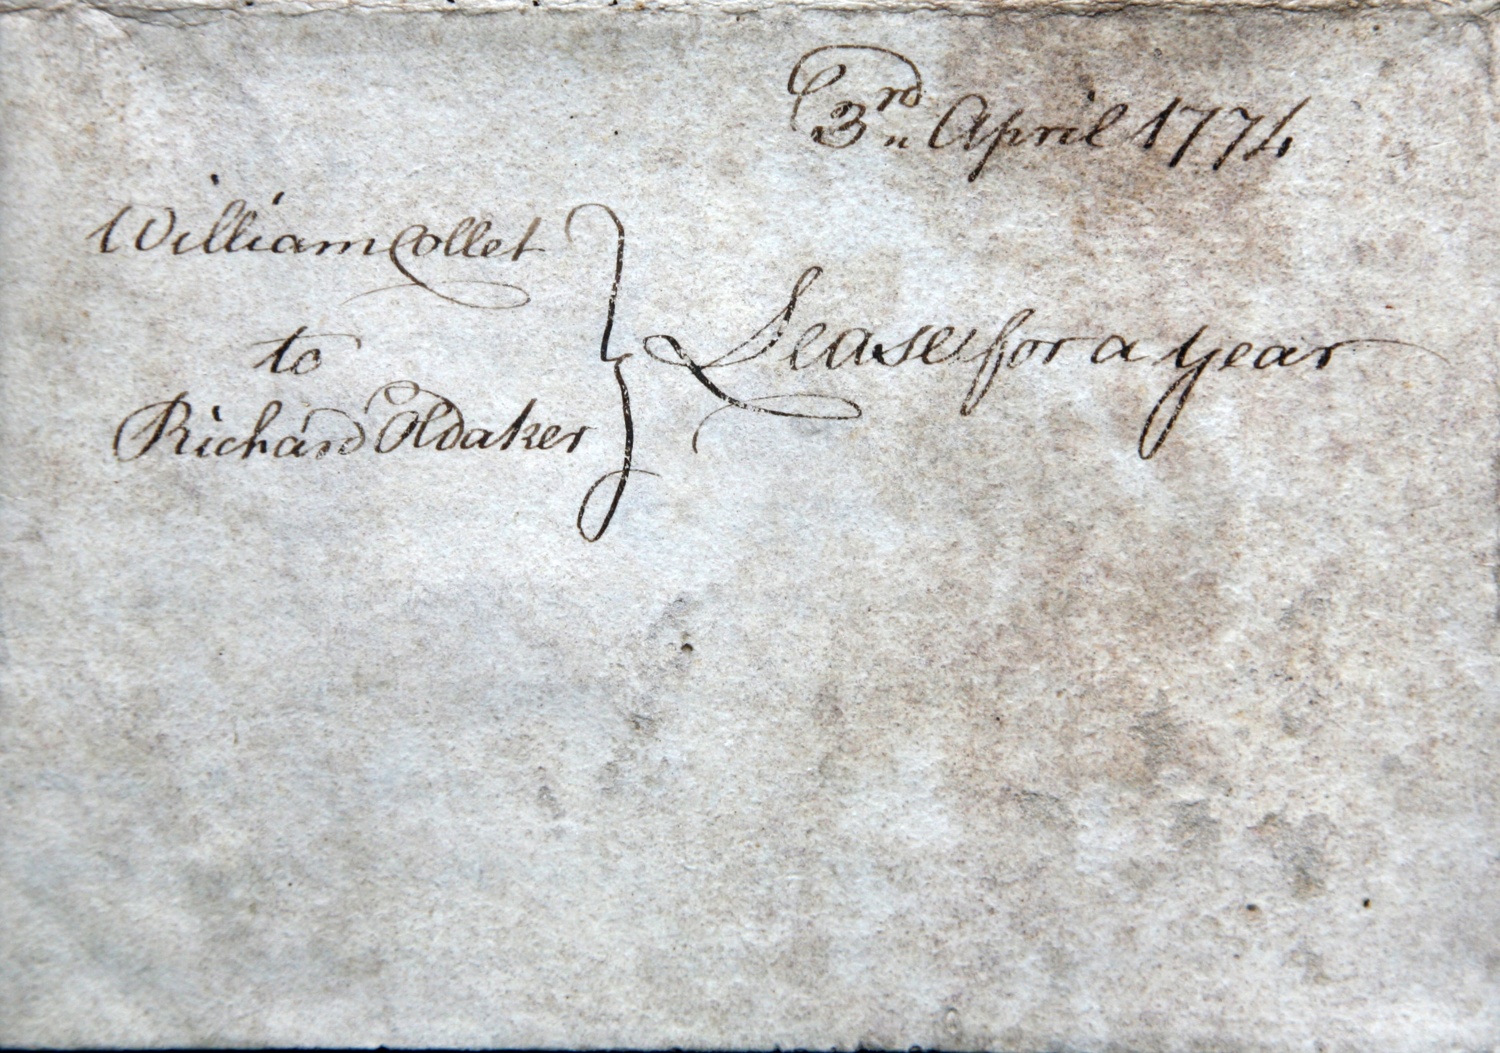 3rd April 1774
William Collet
to
Richard Oldaker
Lease for a year